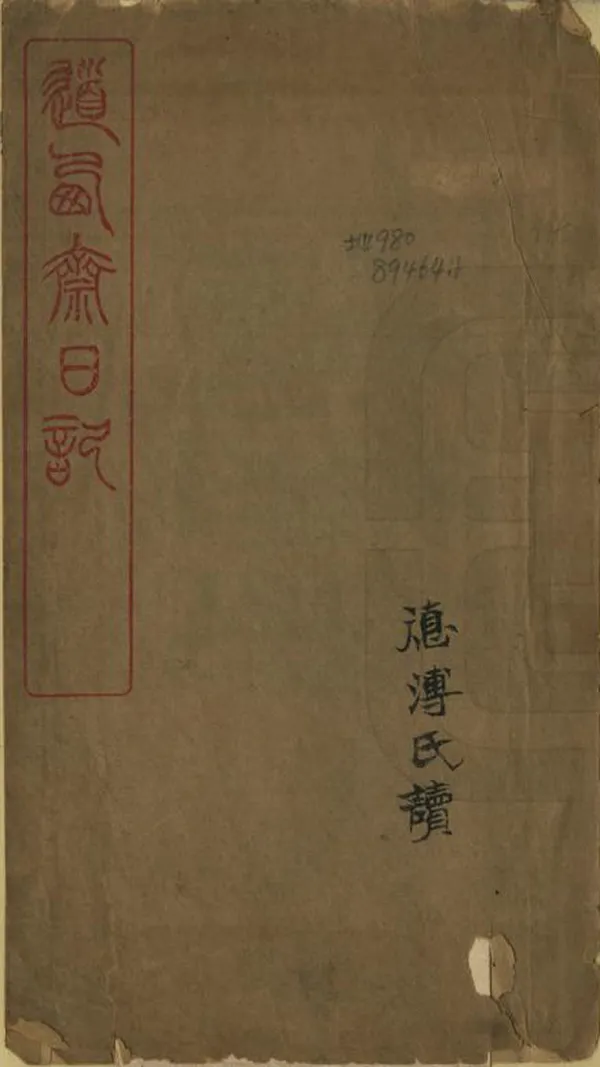 道西齋日記
地980
德溥氏讀